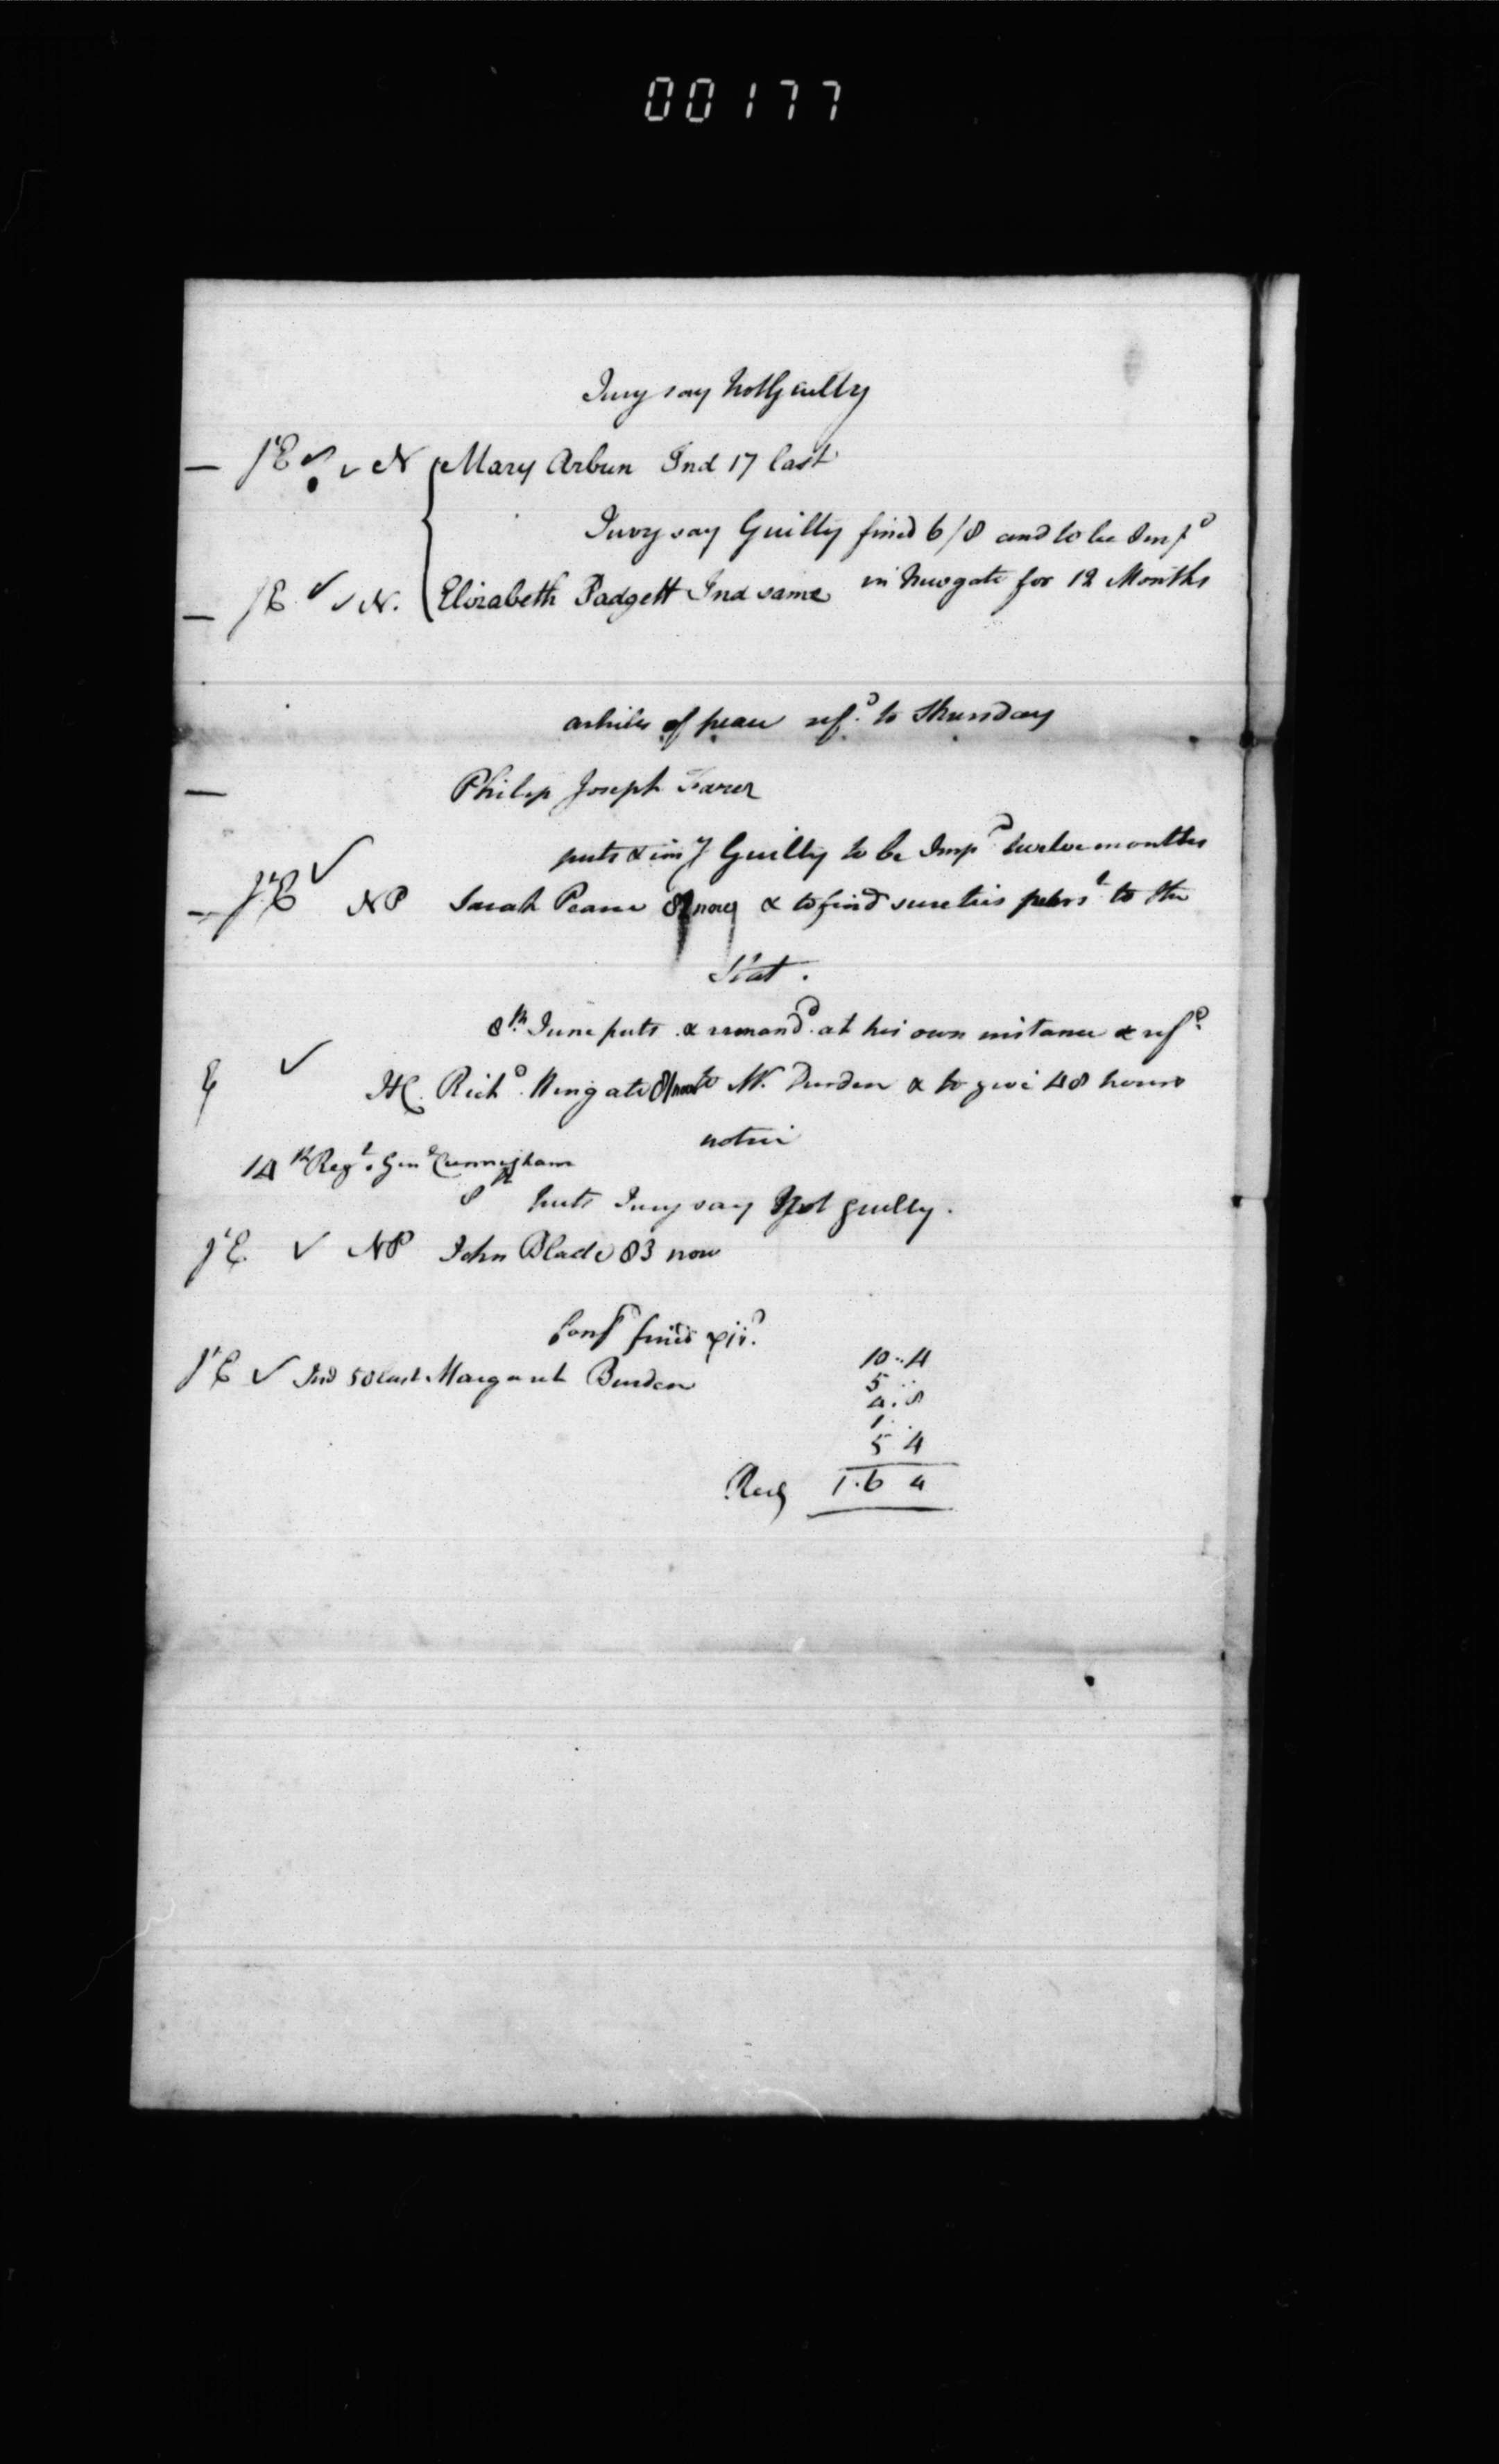 00177
Jury say Not Guilty
Mary Arbun Ind 17 last
Jury say Guilty fined 6/8 and to be Imp.d
N. Elizabeth Padgett Ind same in Newgate for 12 Months
articles of peace resp.d to Thursday
Philip Joseph
puts Guilty to be Imp.d twelve months
NP Sarah Pearce now & to find sureties purs.t to the
Stat.
8th June puts & remand.d at his own instance &
H. Rich.d Wingate to Mr. Durden & to give 48 hours
notice
14th Reg.t Gen.l Cunningham
8th puts Jury say Not guilty.
NP John Blade 83 now
Conf.d fined
Ind 50 last Margaret Burden
10..4
5..
4.8
1.
5 4
1.6 4